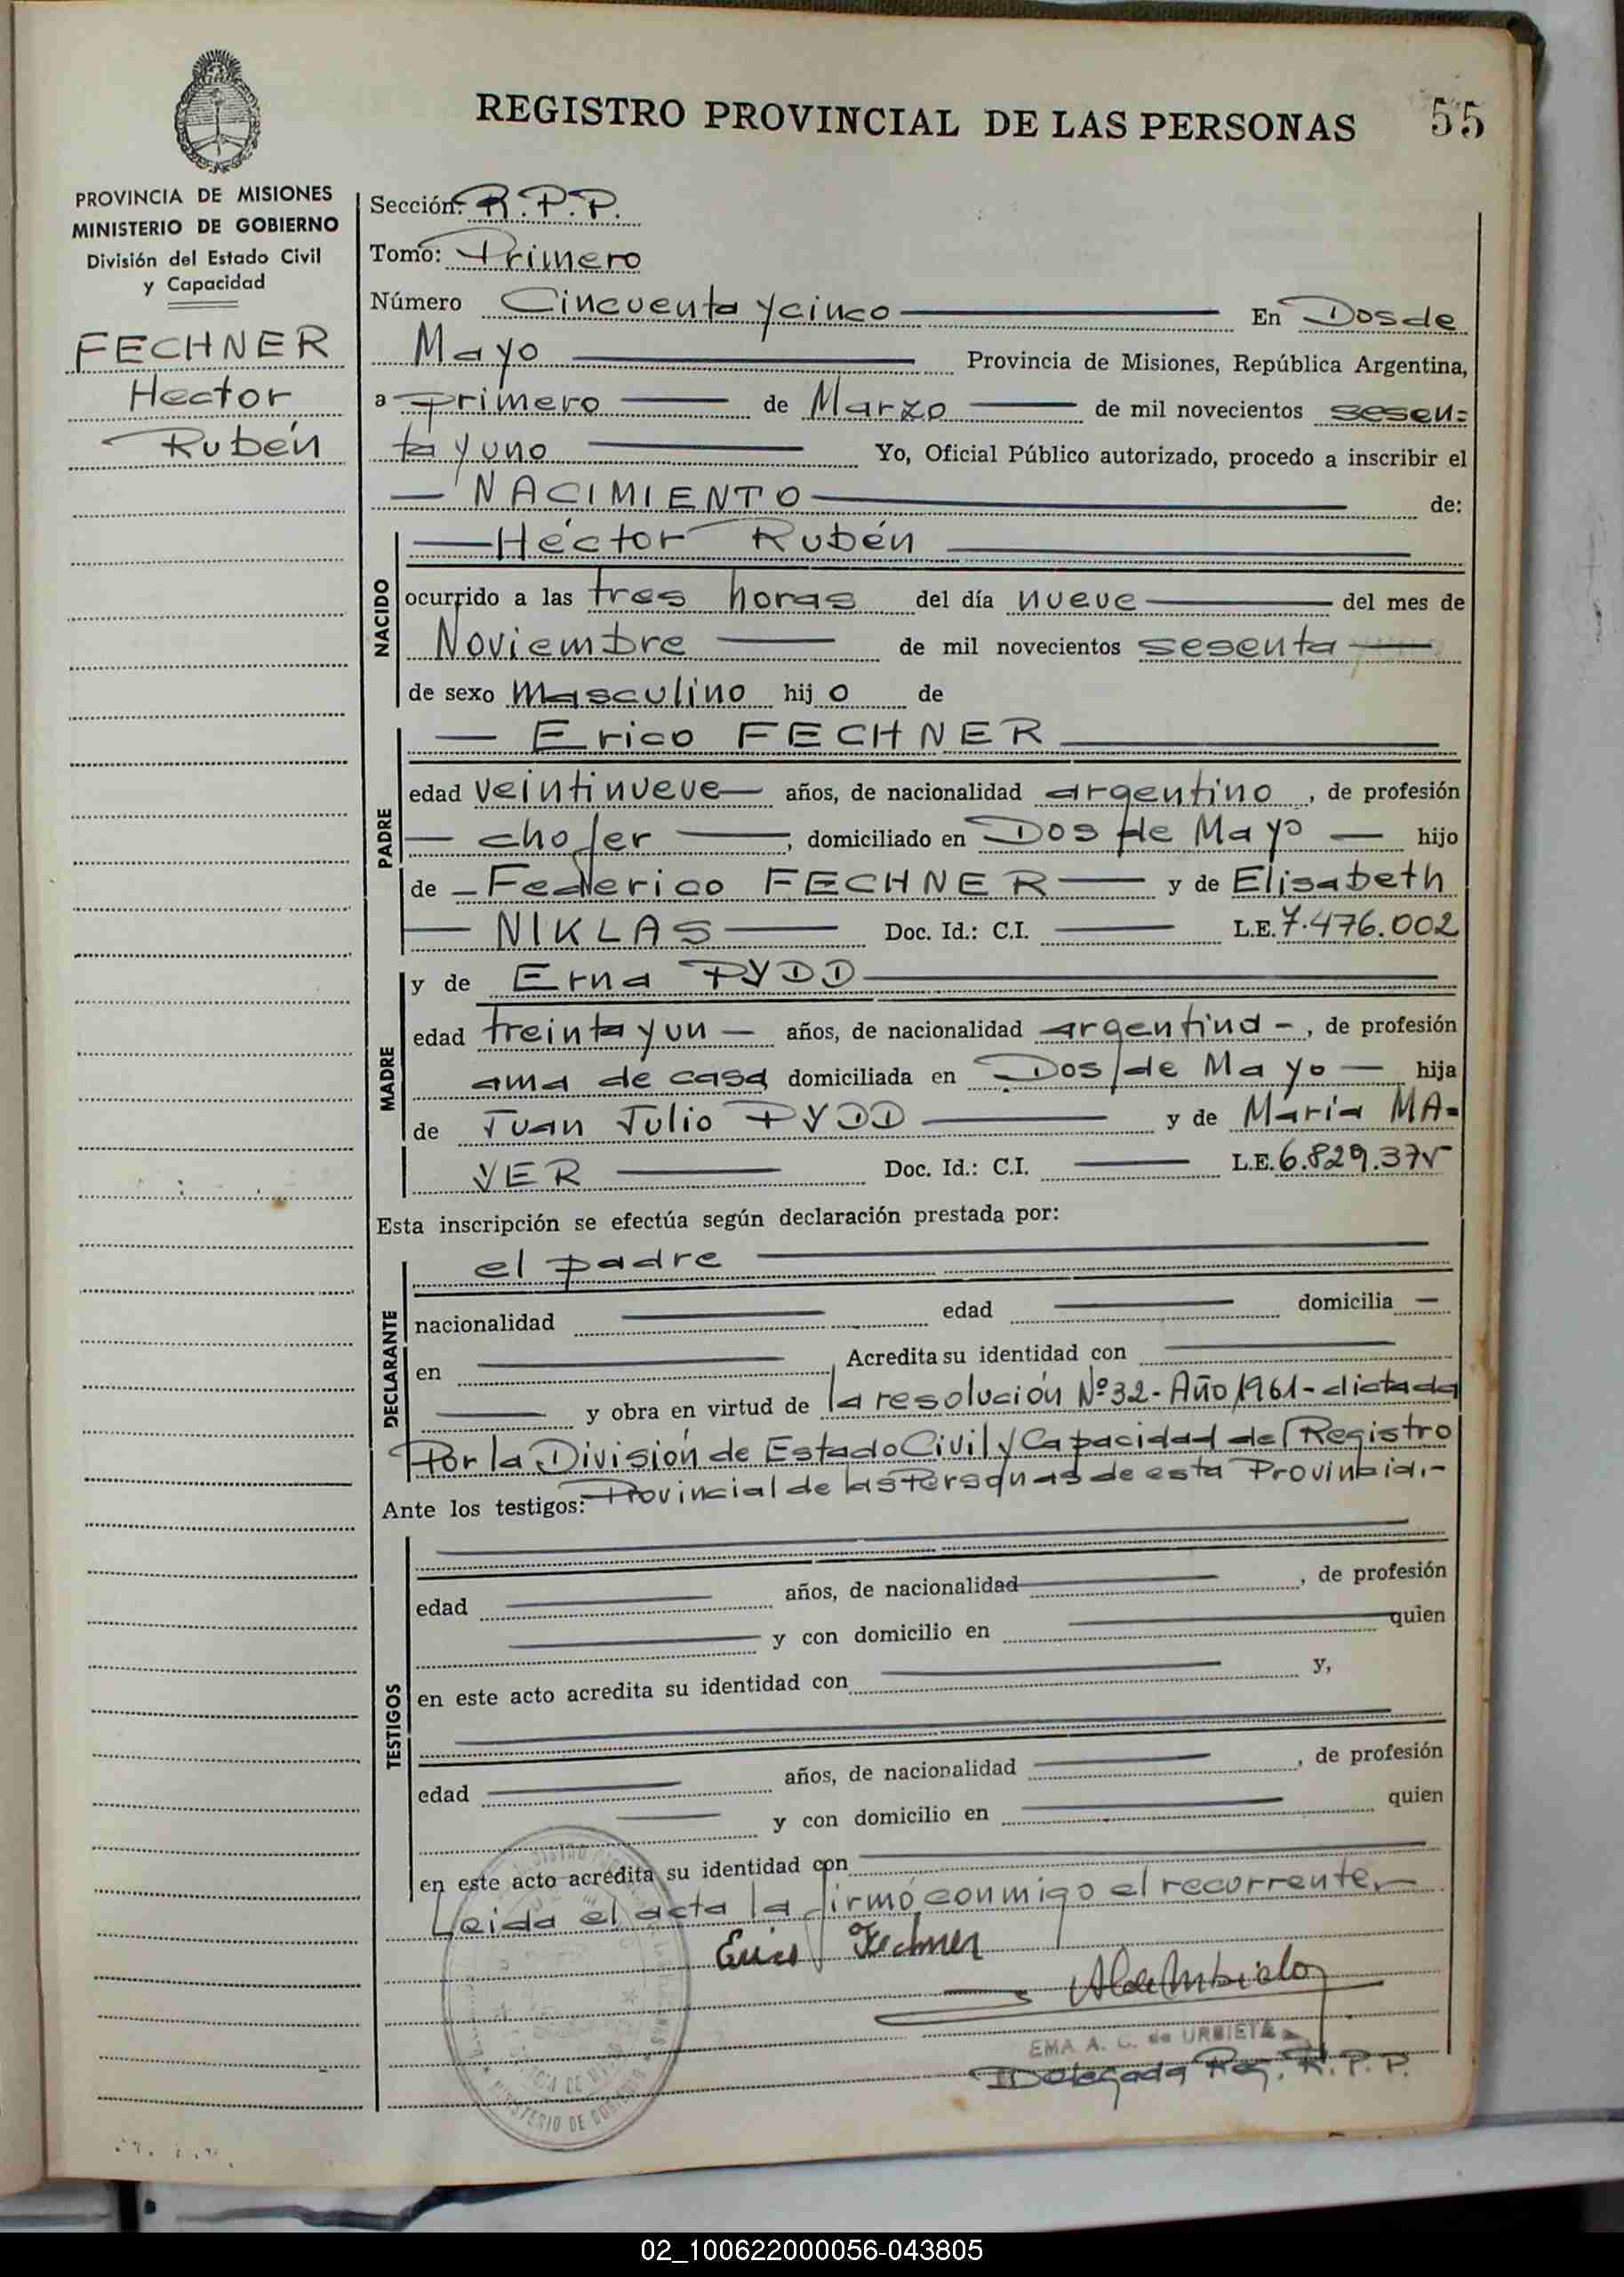 REGISTRO PROVINCIAL DE LAS PERSONAS 55
PROVINCIA DE MISIONES
MINISTERIO DE GOBIERNO
División del Estado Civil
y Capacidad
FECHNER
Hector
Rubén
Sección: R.P.P.
Tomo: Primero
Número Cincuenta y cinco En Dos de
Mayo Provincia de Misiones, República Argentina,
a primero de Marzo de mil novecientos sesen=
ta y uno Yo, Oficial Público autorizado, procedo a inscribir el
NACIMIENTO de:
NACIDO
Héctor Rubén
ocurrido a las tres horas del día nueve del mes de
Noviembre de mil novecientos sesenta
de sexo masculino hijo de
PADRE
Erico FECHNER
edad veintinueve años, de nacionalidad argentino, de profesión
chofer, domiciliado en Dos de Mayo hijo
de Federico FECHNER y de Elisabeth
NIKLAS Doc. Id.: C.I. L.E. 7.476.002
MADRE
y de Erna PYDD
edad treinta y un años, de nacionalidad argentina, de profesión
ama de casa domiciliada en Dos de Mayo hija
de Juan Julio PYDD y de María MA=
YER Doc. Id.: C.I. L.E. 6.829.375
Esta inscripción se efectúa según declaración prestada por:
DECLARANTE
el padre
nacionalidad edad domicilia
en , Acredita su identidad con
y obra en virtud de la resolución Nº 32 - Año 1961 - dictada
Por la División de Estado Civil y Capacidad del Registro
Provincial de las Personas de esta Provincia.-
Ante los testigos:
TESTIGOS
edad años, de nacionalidad , de profesión
y con domicilio en quien
en este acto acredita su identidad con y,
edad años, de nacionalidad , de profesión
y con domicilio en quien
en este acto acredita su identidad con
Leida el acta la firmó conmigo el recurrente.
Erico Fechner
EMA A. C. de URBIETA
Delegada Reg. R.P.P.
MINISTERIO DE GOBIERNO
02_100622000056-043805